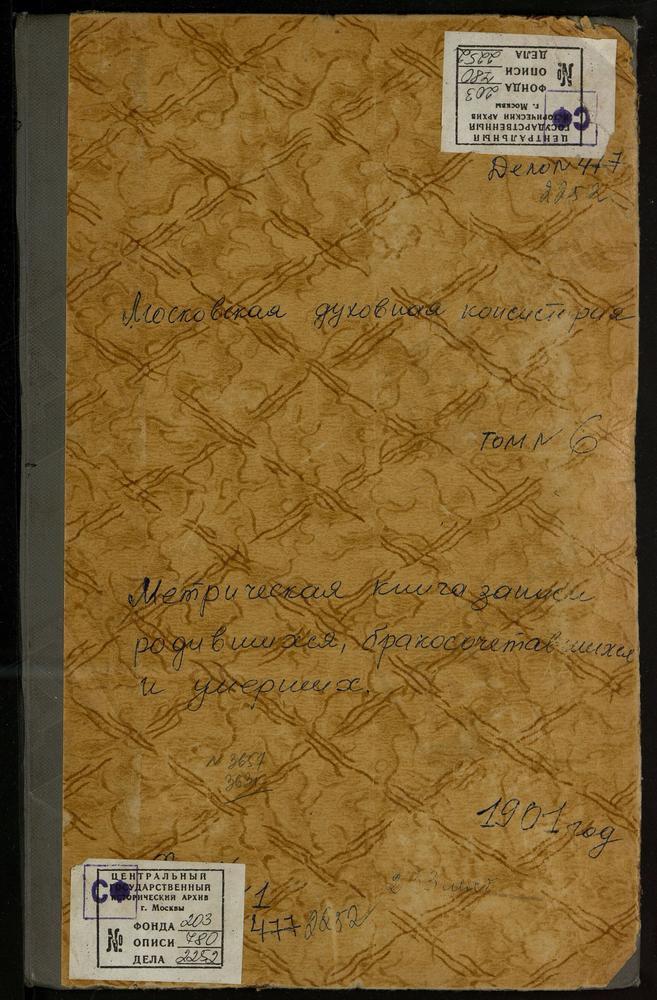 ЦЕНТРАЛЬНЫЙ
ГОСУДАРСТВЕННЫЙ
ИСТОРИЧЕСКИЙ АРХИВ
г. Москвы
СФ
ФОНДА 203
№ ОПИСИ 780
ДЕЛА 2252
Дело № 477
2252
Московская духовная консистория
том № 6
Метрическая книга записи
родившихся, бракосочетавшихся
и умерших.
№ 3657
1901 год
1
477 2252
ЦЕНТРАЛЬНЫЙ
ГОСУДАРСТВЕННЫЙ
ИСТОРИЧЕСКИЙ АРХИВ
г. Москвы
СФ
ФОНДА 203
№ ОПИСИ 780
ДЕЛА 2252